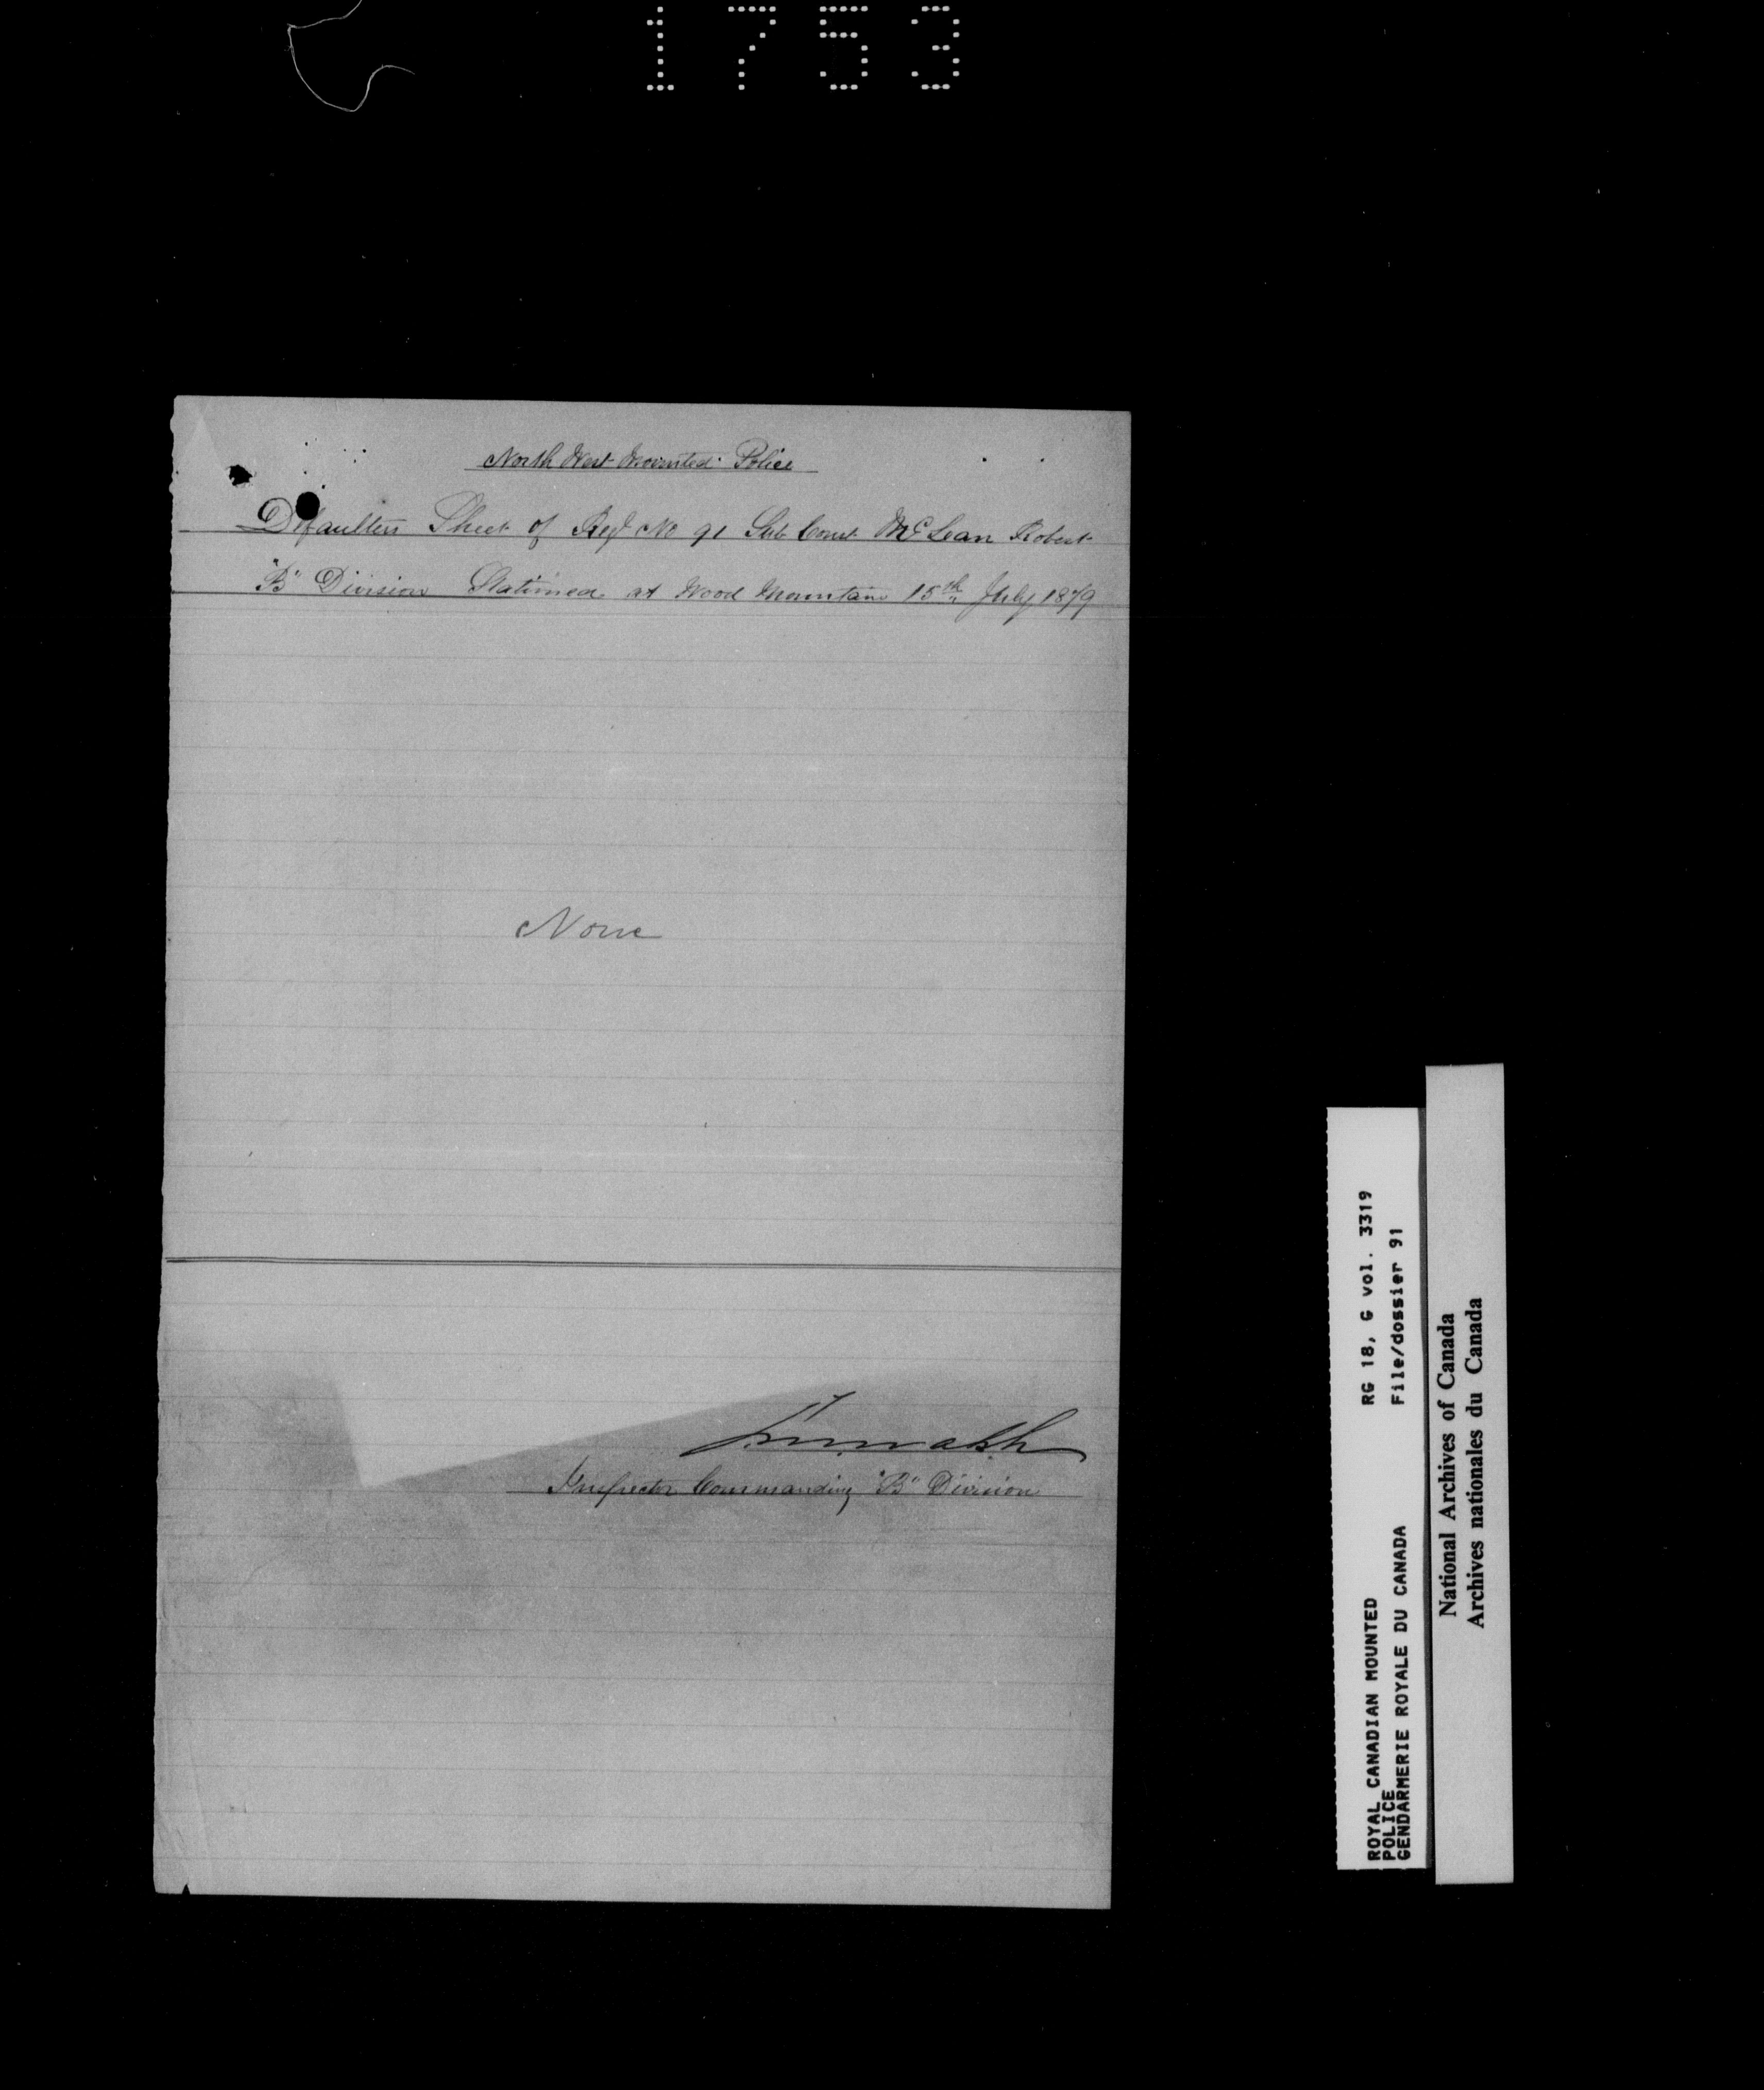 1753
North West Mounted Police
Defaulters Sheet of Regl No 91 Sub Const McLean Robert
"B" Division Stationed at Wood Mountain 15th July 1879
None
J.M. Walsh
Inspector Commanding "B" Division
ROYAL CANADIAN MOUNTED RG 18, G vol. 3319
POLICE File/dossier 91
GENDARMERIE ROYALE DU CANADA
National Archives of Canada
Archives nationales du Canada